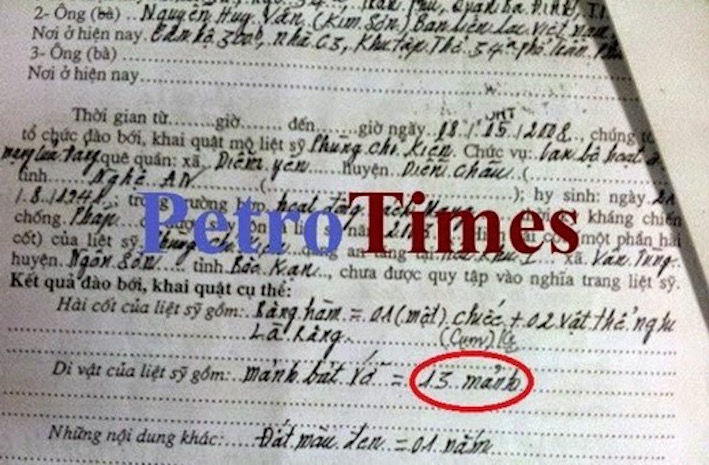 Trần Phú, Quận Ba Đình, T.
2- Ông (bà) .. Nguyễn Huy Văn (Kim Sơn) Ban liên lạc Việt Nam,
Nơi ở hiện nay Căn hộ 300, nhà C3, Khu tập Thể 34A phố Trần Phú
3- Ông (bà)
Nơi ở hiện nay
Thời gian từ......giờ...... đến......giờ ngày..18./.05./2008., chúng tô
tổ chức đào bới, khai quật mộ liệt sỹ Phùng Chí Kiên. Chức vụ: Cán bộ hoạt đ
quê quán: xã. Diễn yên huyện Diễn Châu (
tỉnh Nghệ AN (...); hy sinh: ngày 21
trong trường hợp hoạt động Cách Mạng kháng chiến
chống Pháp một phần hài
cốt) của liệt sỹ Phùng Chí Kiên an táng tại xã. Vân Tùng
huyện Ngân Sơn tỉnh Bắc Kạn, chưa được quy tập vào nghĩa trang liệt sỹ.
PetroTimes
Kết quả đào bới, khai quật cụ thể:
Hài cốt của liệt sỹ gồm: Răng hàm = 01 (một) chiếc + 02 vật thể nghi
Là Răng
Di vật của liệt sỹ gồm: mảnh bát vỡ = 13 mảnh
Những nội dung khác: Đất màu đen = 01 nắm